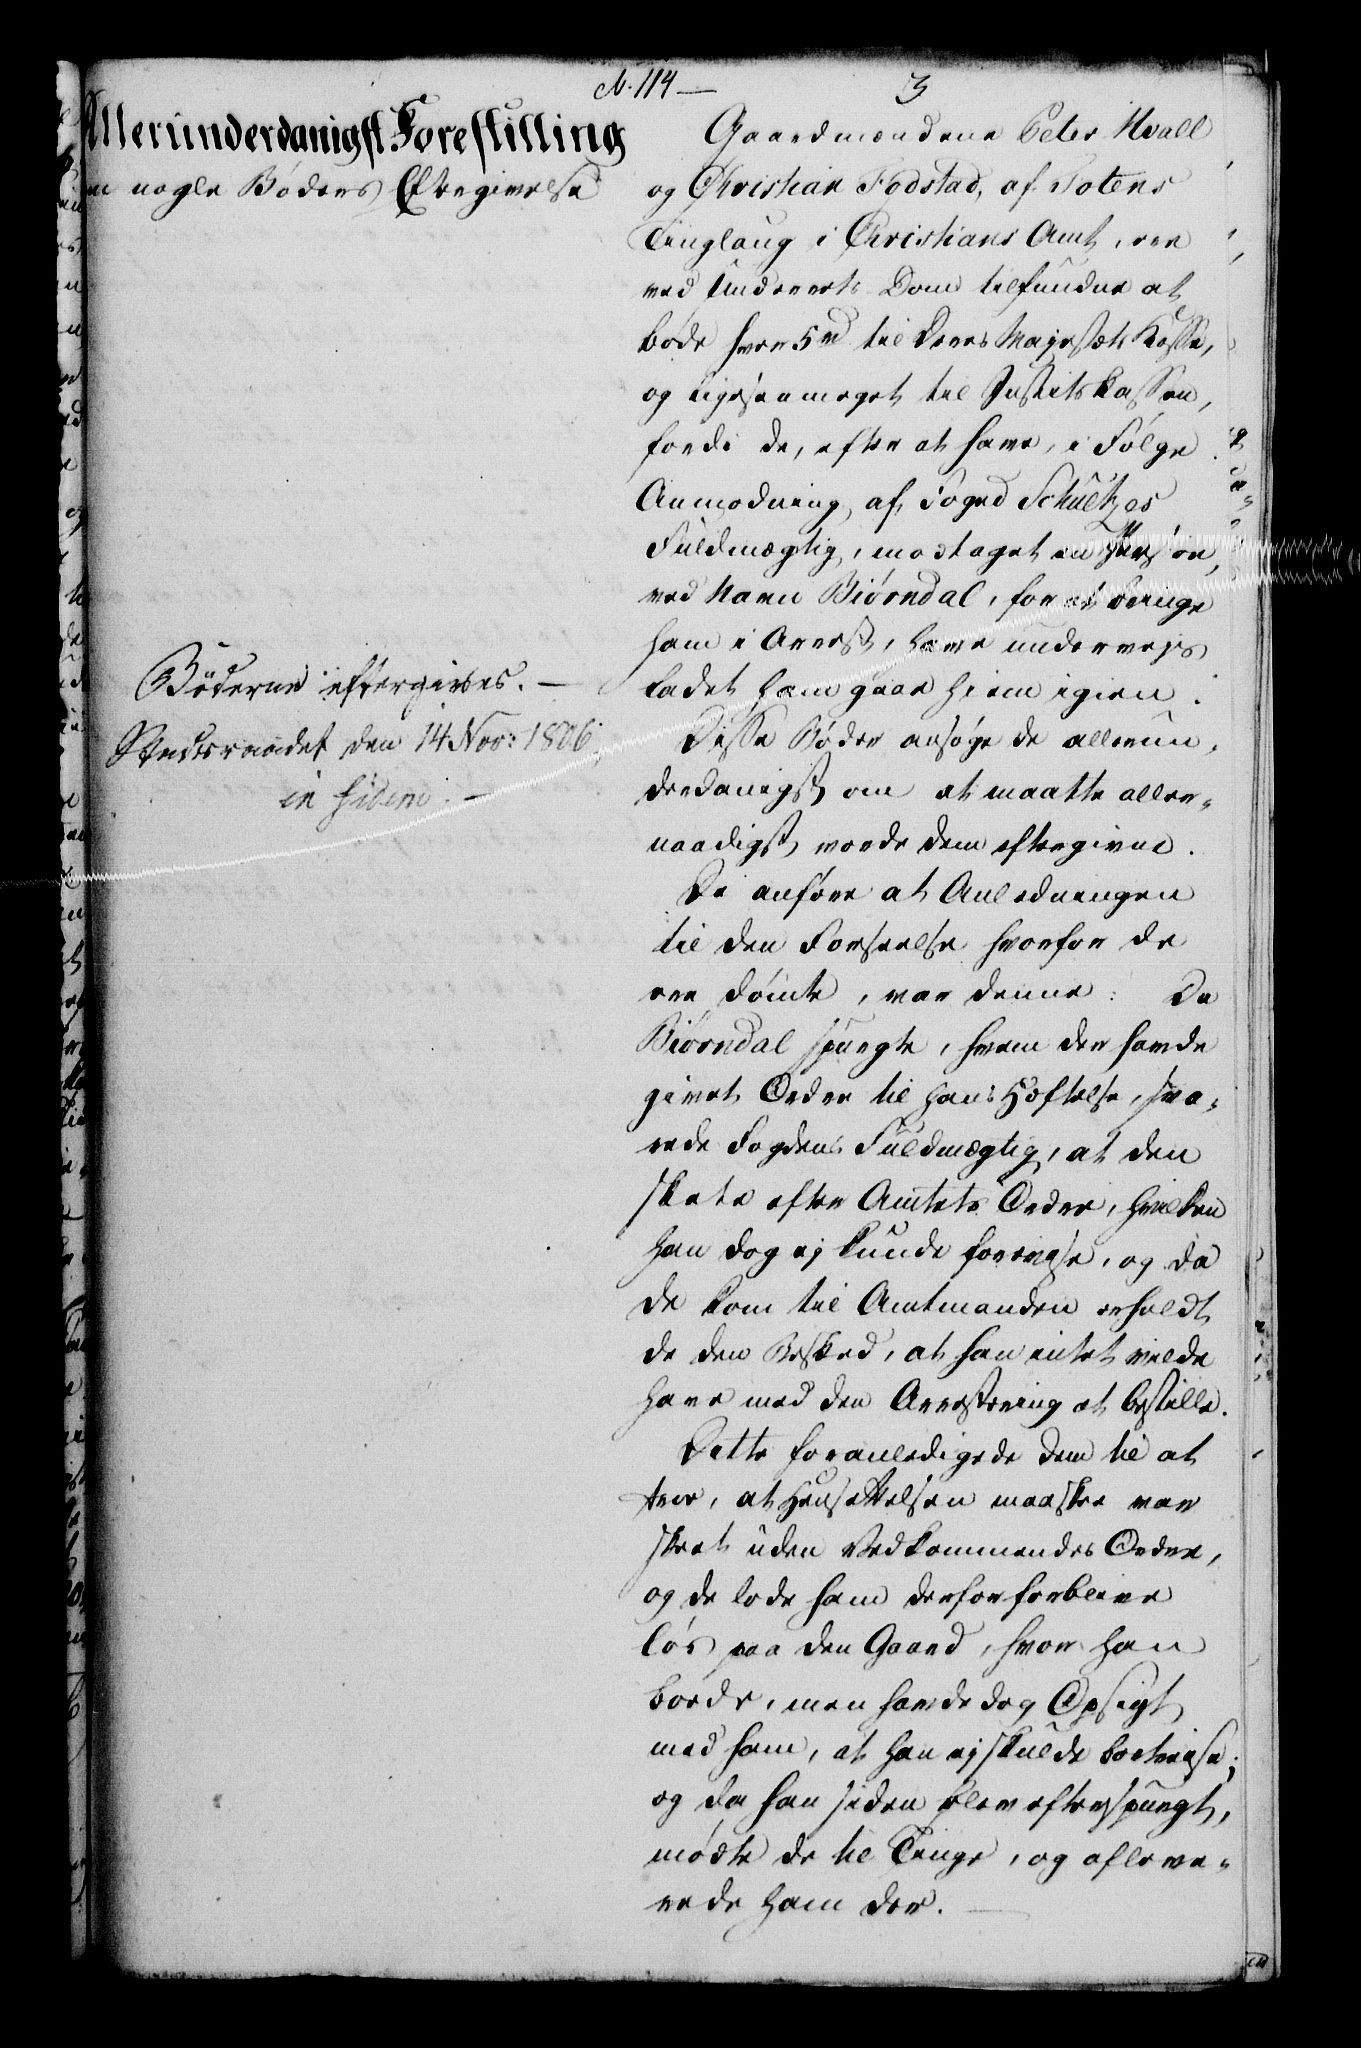 N. 114 —
3
Allerunderdanigst Forestilling
om nogle Bøders Eftergivelse
Bøderne eftergives. —
Statsraadet den 14 Nov: 1806
in fidem. —
Gaardmændene Peter Hvall
og Christian Fodstad, af Totens
Tinglaug i Christians Amt, ere
ved Underrets Dom tilfundne at
bøde hver 5 rd til Deres Majestæts Kasse,
og ligesaameget til Justitskassen,
fordi de, efter at have, i Følge
Anmodning af Foged Schultzes
Fuldmægtig, modtaget en Person,
ved Navn Biørndal, for at bringe
ham i Arrest, have undervejs
ladet ham gaae hiem igien.
Disse Bøder ansøge de allerun-
derdanigst om at maatte aller-
naadigst vorde dem eftergivne.
De anføre at Anledningen
til den Forseelse hvorfor de
ere dømte, var denne: Da
Biørndal spurgte, hvem der havde
givet Ordre til hans Hæftelse, sva-
rede Fogdens Fuldmægtig, at den
skete efter Amtets Ordre, hvilken
han dog ej kunde forevise, og da
de kom til Amtmanden erholdt
de den Besked, at han intet vilde
have med den Arrestering at bestille.
Dette foranledigede dem til at
troe, at Hensættelsen maaskee var
skeet uden Vedkommendes Ordre,
og de lode ham derfor forblive
løs paa den Gaard, hvor han
boede, men havde dog Opsigt
med ham, at han ej skulde bortreise;
og da han siden blev efterspurgt,
mødte de til Tinge, og afleve-
rede ham der. —